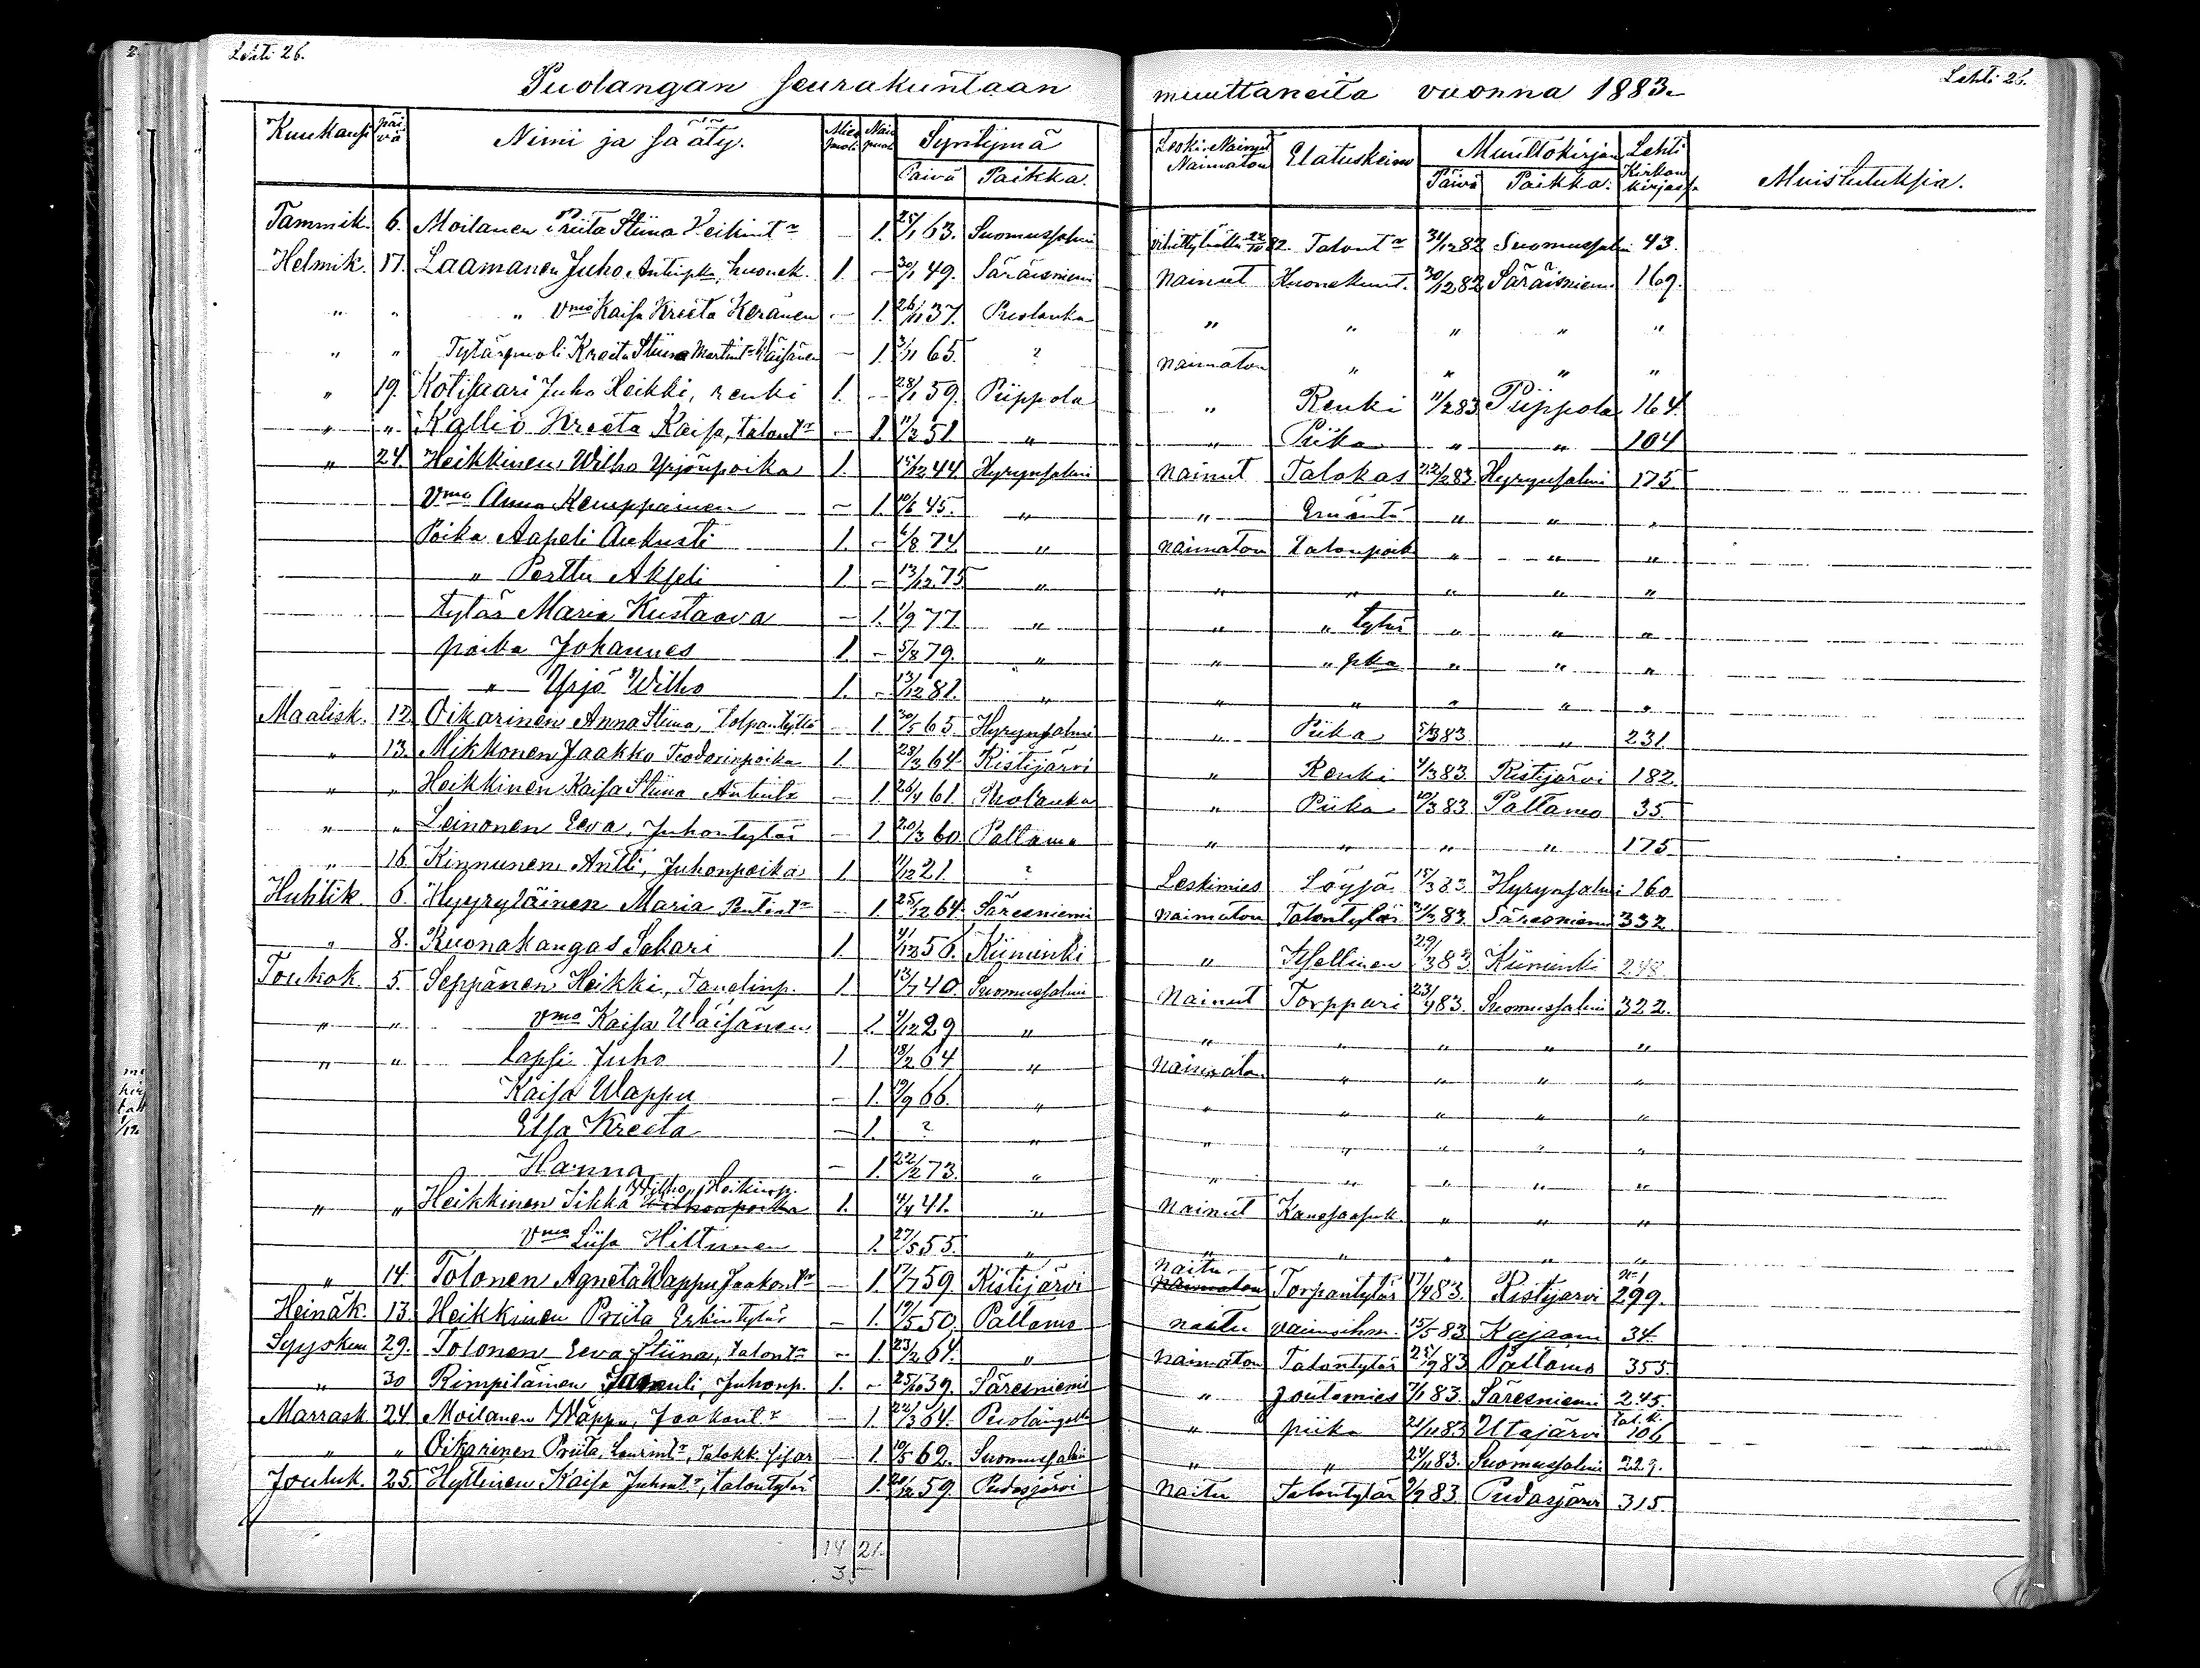 Lehti 26.
Puolangan seurakuntaan muuttaneita vuonna 1883.
Lehti 26.
Kuukausi päivä Nimi ja sääty. Miespuoli Naispuoli Syntymä Päivä Paikka. Leski, Nainut Naimaton Elatuskeino Muuttokirjan Päivä Paikka. Lehti Kirkonkirjassa Muistutuksia.
Tammik. 6. Moilanen Priita Stiina Heikint:r – 1. 25/1 63. Suomussalmi vihitty 82. Talont:r 31/12 82 Suomussalmi 43.
Helmik. 17. Laamanen Juho Antinpka, huonek. 1. – 30/1 49. Säräisniemi Nainut Huonekunt. 30/12 82 Säräisniemi 169.
" " " Vmo Kaisa Kreeta Keränen – 1. 26/11 37. Puolanka " " " " "
" " Tytärpuoli Kreeta Stiina Martint:r Väisänen – 1. 3/11 65. ? naimaton " " " "
" 19. Kotisaari Juho Heikki, renki 1. – 28/1 59. Piippola " Renki 11/2 83 Piippola 164.
" " Kallio Kreeta Kaisa, talont:r – 1. 11/2 51 " " Piika " " 104
" 24. Heikkinen Wilho Yrjönpoika 1. 15/12 44. Hyrynsalmi nainut Talokas 22/2 83. Hyrynsalmi 175
Vmo Anna Kemppainen – 1. 10/6 45. " " Emäntä " " "
Poika Aapeli Aukusti 1. – 6/8 74. " naimaton talonpoik " " "
" Perttu Akseli 1. – 13/12 75 " " " " " "
tytär Maria Kustaava – 1. 1/9 77. " " " tytär " " "
poika Johannes 1. – 5/8 79. " " " pka " " "
" Yrjö Wilho 1. – 13/12 81. " " " " " "
Maalisk. 12. Oikarinen Anna Stiina, talpantyttö – 1. 30/5 63. Hyrynsalmi " Piika 5/3 83 " 231.
" 13. Mikkonen Jaakko Teodorinpoika 1. 28/3 64. Ristijärvi " Renki 4/3 83. Ristijärvi 182.
" " Heikkinen Kaisa Stiina Antint:r – 1. 26/4 61. Puolanka " Piika 10/3 83. Paltamo 35.
" " Leinonen Eeva, Juhontytär – 1. 20/3 60. Paltamo " " " " 175.
" 16. Kinnunen Antti, Juhonpoika 1. 11/12 21. ? Leskimies Löysä 15/3 83. Hyrynsalmi 160.
Huhtik 6. Hyyryläinen Maria Pentint:r – 1. 25/12 64. Säresniemi naimaton Talontytär 31/3 83. Säresniemi 332.
" 8. Kuonakangas Sakari 1. 4/12 56. Kiiminki " Itsellinen 29/3 83. Kiiminki 248.
Toukok. 5. Seppänen Heikki, Taneli​np. 1. 13/7 40. Suomussalmi Nainut Torppari 23/4 83. Suomussalmi 322.
" " Vmo Kaisa Wäisänen 1. 4/12 29 " " " " " "
" " lapsi Juho 1. 18/2 64 " naimaton " " " "
Kaisa Wappu – 1. 19/9 66. " " " " " "
Elsa Kreeta – 1. ? " " " " " "
Hanna – 1. 22/2 73. " " " " " "
" " Heikkinen Sikka Wilho, Heikinp. 1. 4/4 41. " Nainut " " "
Vmo Liisa Hiltunen 1. 27/5 55. " " " " " "
" 14. Tolonen Agneta Wappu Jaakont:r – 1. 17/7 59. Ristijärvi naitu naimaton Torpantytär 17/4 83. Ristijärvi N:1 299.
Heinäk. 13. Heikkinen Priita Erkintytär – 1. 19/5 50. Paltamo naitu vaimoihm. 15/5 83. Kajaani 34.
Syysk. 29. Tolonen Eeva Stiina, talont:r – 1. 23/2 64. " naimaton Talontytär 25/9 83 Paltamo 355
" 30 Rimpiläinen Samuli, Juhonp. 1. – 25/10 39. Säresniemi " joutomies 7/1 83. Säresniemi 245.
Marrask 24. Moilanen Wappu, Jaakont:r – 1. 22/3 64. Puolangalta " piika 21/11 83 Utajärvi Tal. k. 106
" " Oikarinen Priita, Laurint:r, talokk. sisar 1. 19/5 62. Suomussalmi " " 24/11 83. Suomussalmi 229.
Jouluk. 25. Hyttinen Kaisa Juhont:r, talontytär 1. 59. Pudasjärvi naitu talontytär 83 Pudasjärvi 315.
14 21.
35